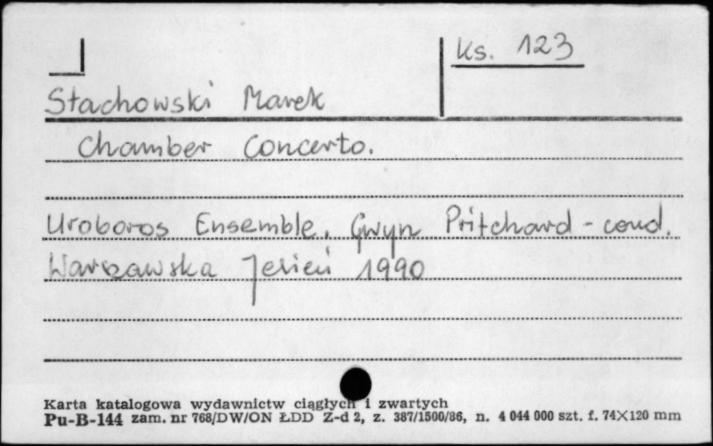 Ks. 123
Stachowski Marek
Chamber Concerto.
Uroboros Ensemble, Gwyn Pritchard - cond.
Warszawska Jesień 1990
Karta katalogowa wydawnictw ciągłych i zwartych
Pu-B-144 zam. nr 768/DW/ON ŁDD Z-d 2, z. 387/1500/86, n. 4 044 000 szt. f. 74×120 mm